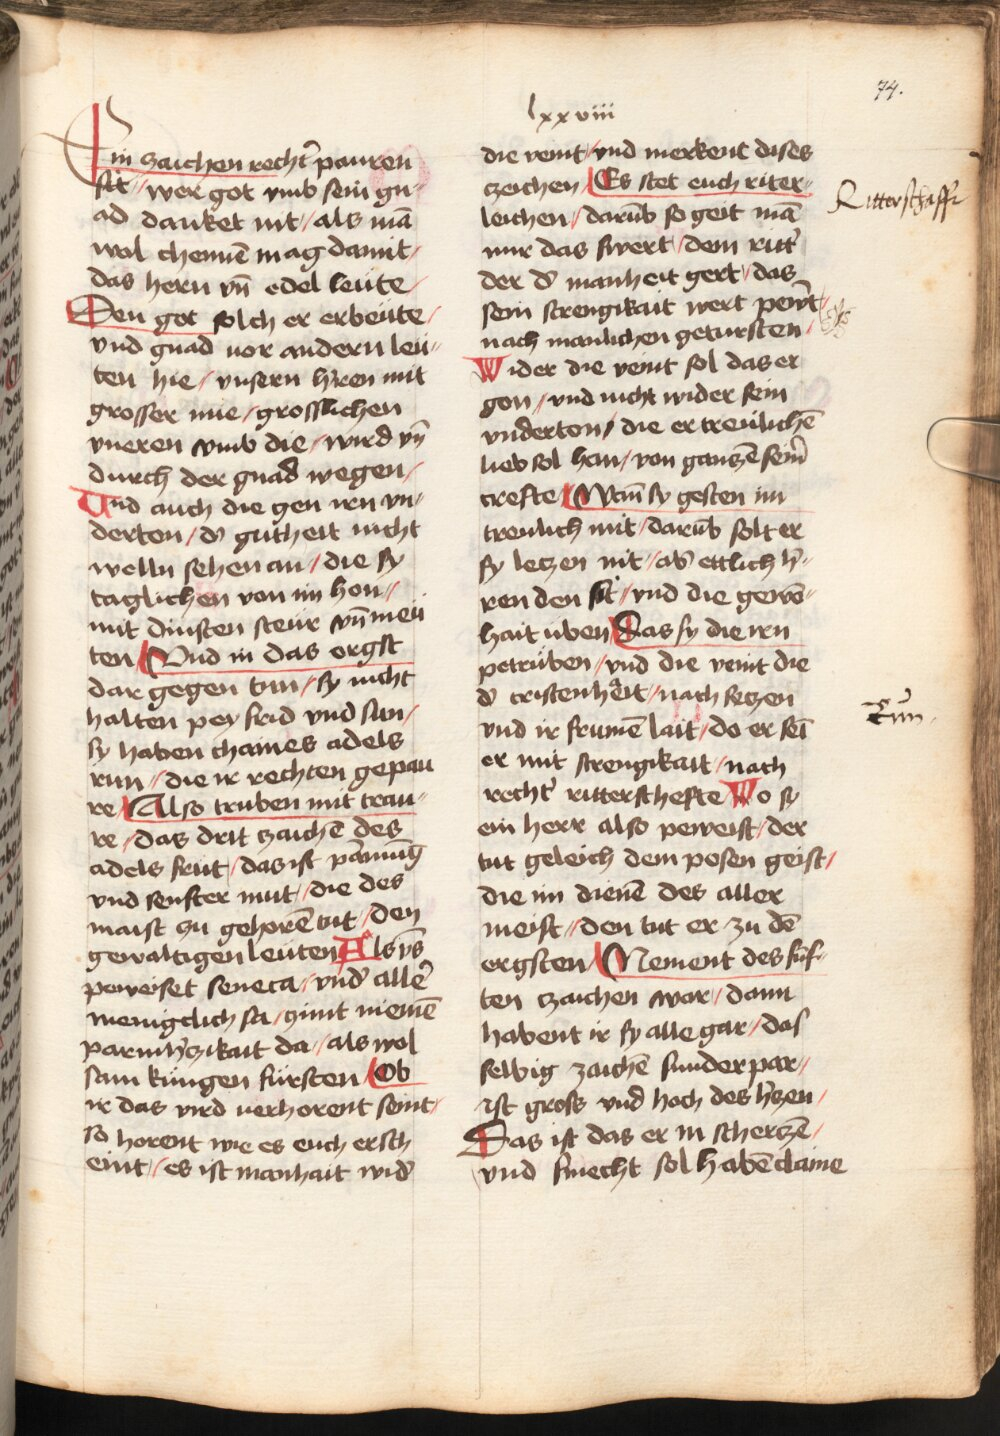 74.
lxxviii
Ein zaichen rechtˀ pauren
sit / wer got vmb sein gu-
ad danket nit / als mā
wol chennē mag damit /
das hern vn̄ edel leute /
Den got solch er erbeute /
vnd gnad vor andern leu-
ten hie / vnsern hˀren mit
grosser mue / grosslichen
vneren vmb die / wird vn̄
durch der gnad wegen /
Vnd auch die gen irn vn-
derten / dˀ gutheit nicht
welln sehen an / die sy
taglichen von im hon /
mit dinsten steur vn̄ meū
ten / Vnd in das orgst
dar gegen tun / sy nicht
halten pey frid vnd sun /
sy haben chaines adels
run / die ir rechten gepau
re / Also truben mit trau-
re / das drit zaichē des
adels frut / das ist
vnd senfter mut / die des
maist zu gehorē tut / den
gewaltigen leuten Als vˀs
peweiset seneca / vnd allˀ
menigclich sa / zimt niemē
parmhˀzikait da / als wol
sam kungen fursten / Ob
ir das vird verhorent seint /
so horent wie es euch ersch
eint / es ist manhait widˀ
die veint / vnd merkent dises
czeichen / Es stet euch riter-
leichen / darūb so geit mā
nur das swert / dem rittˀ
der dˀ manheit gert / das
sein strengikait wert
nach manlichen getursten /
Wider die veint sol das er
gen / vnd nicht wider sein
vnderton / die er treulichē
lieb sol han / von ganzē seinˀ
crefte / Wan̄ sy gesten im
treulich mit / darūb solt er
sy leczen nit / abˀ ettlich hˀ-
ren den sit / vnd die gewō-
hait uben Das sy die irn
petruben / vnd die veint die
dˀ cristenheit / nach seczen
vnd ir frumē lait / do er sei
er mit strengikait / nach
rechtˀ ritterschefte Wo sy
ein herr also peweist / der
tut geleich dem posen geist /
die im dienē des aller
meist / den tut er zu dē
ergsten / Nement des funf-
ten czaichen war / dann
habent ir sy alle gar / das
selbig zaichē sunderpar /
ist gross vnd hoch des hˀzen /
Das ist das er in scherczē /
vnd smecht sol habē claine
Ritterschafft